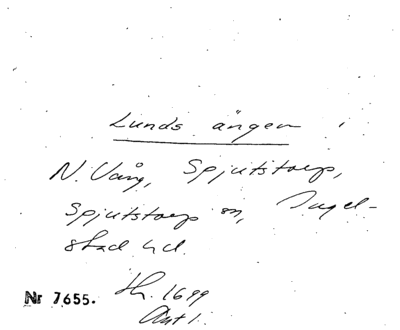 Lunds ängen i
N. Vång, Spjutstorp,
Spjutstorp sn, Ingel-
stad hd.
Nr 7655. Hr. 1699
Akt 1.